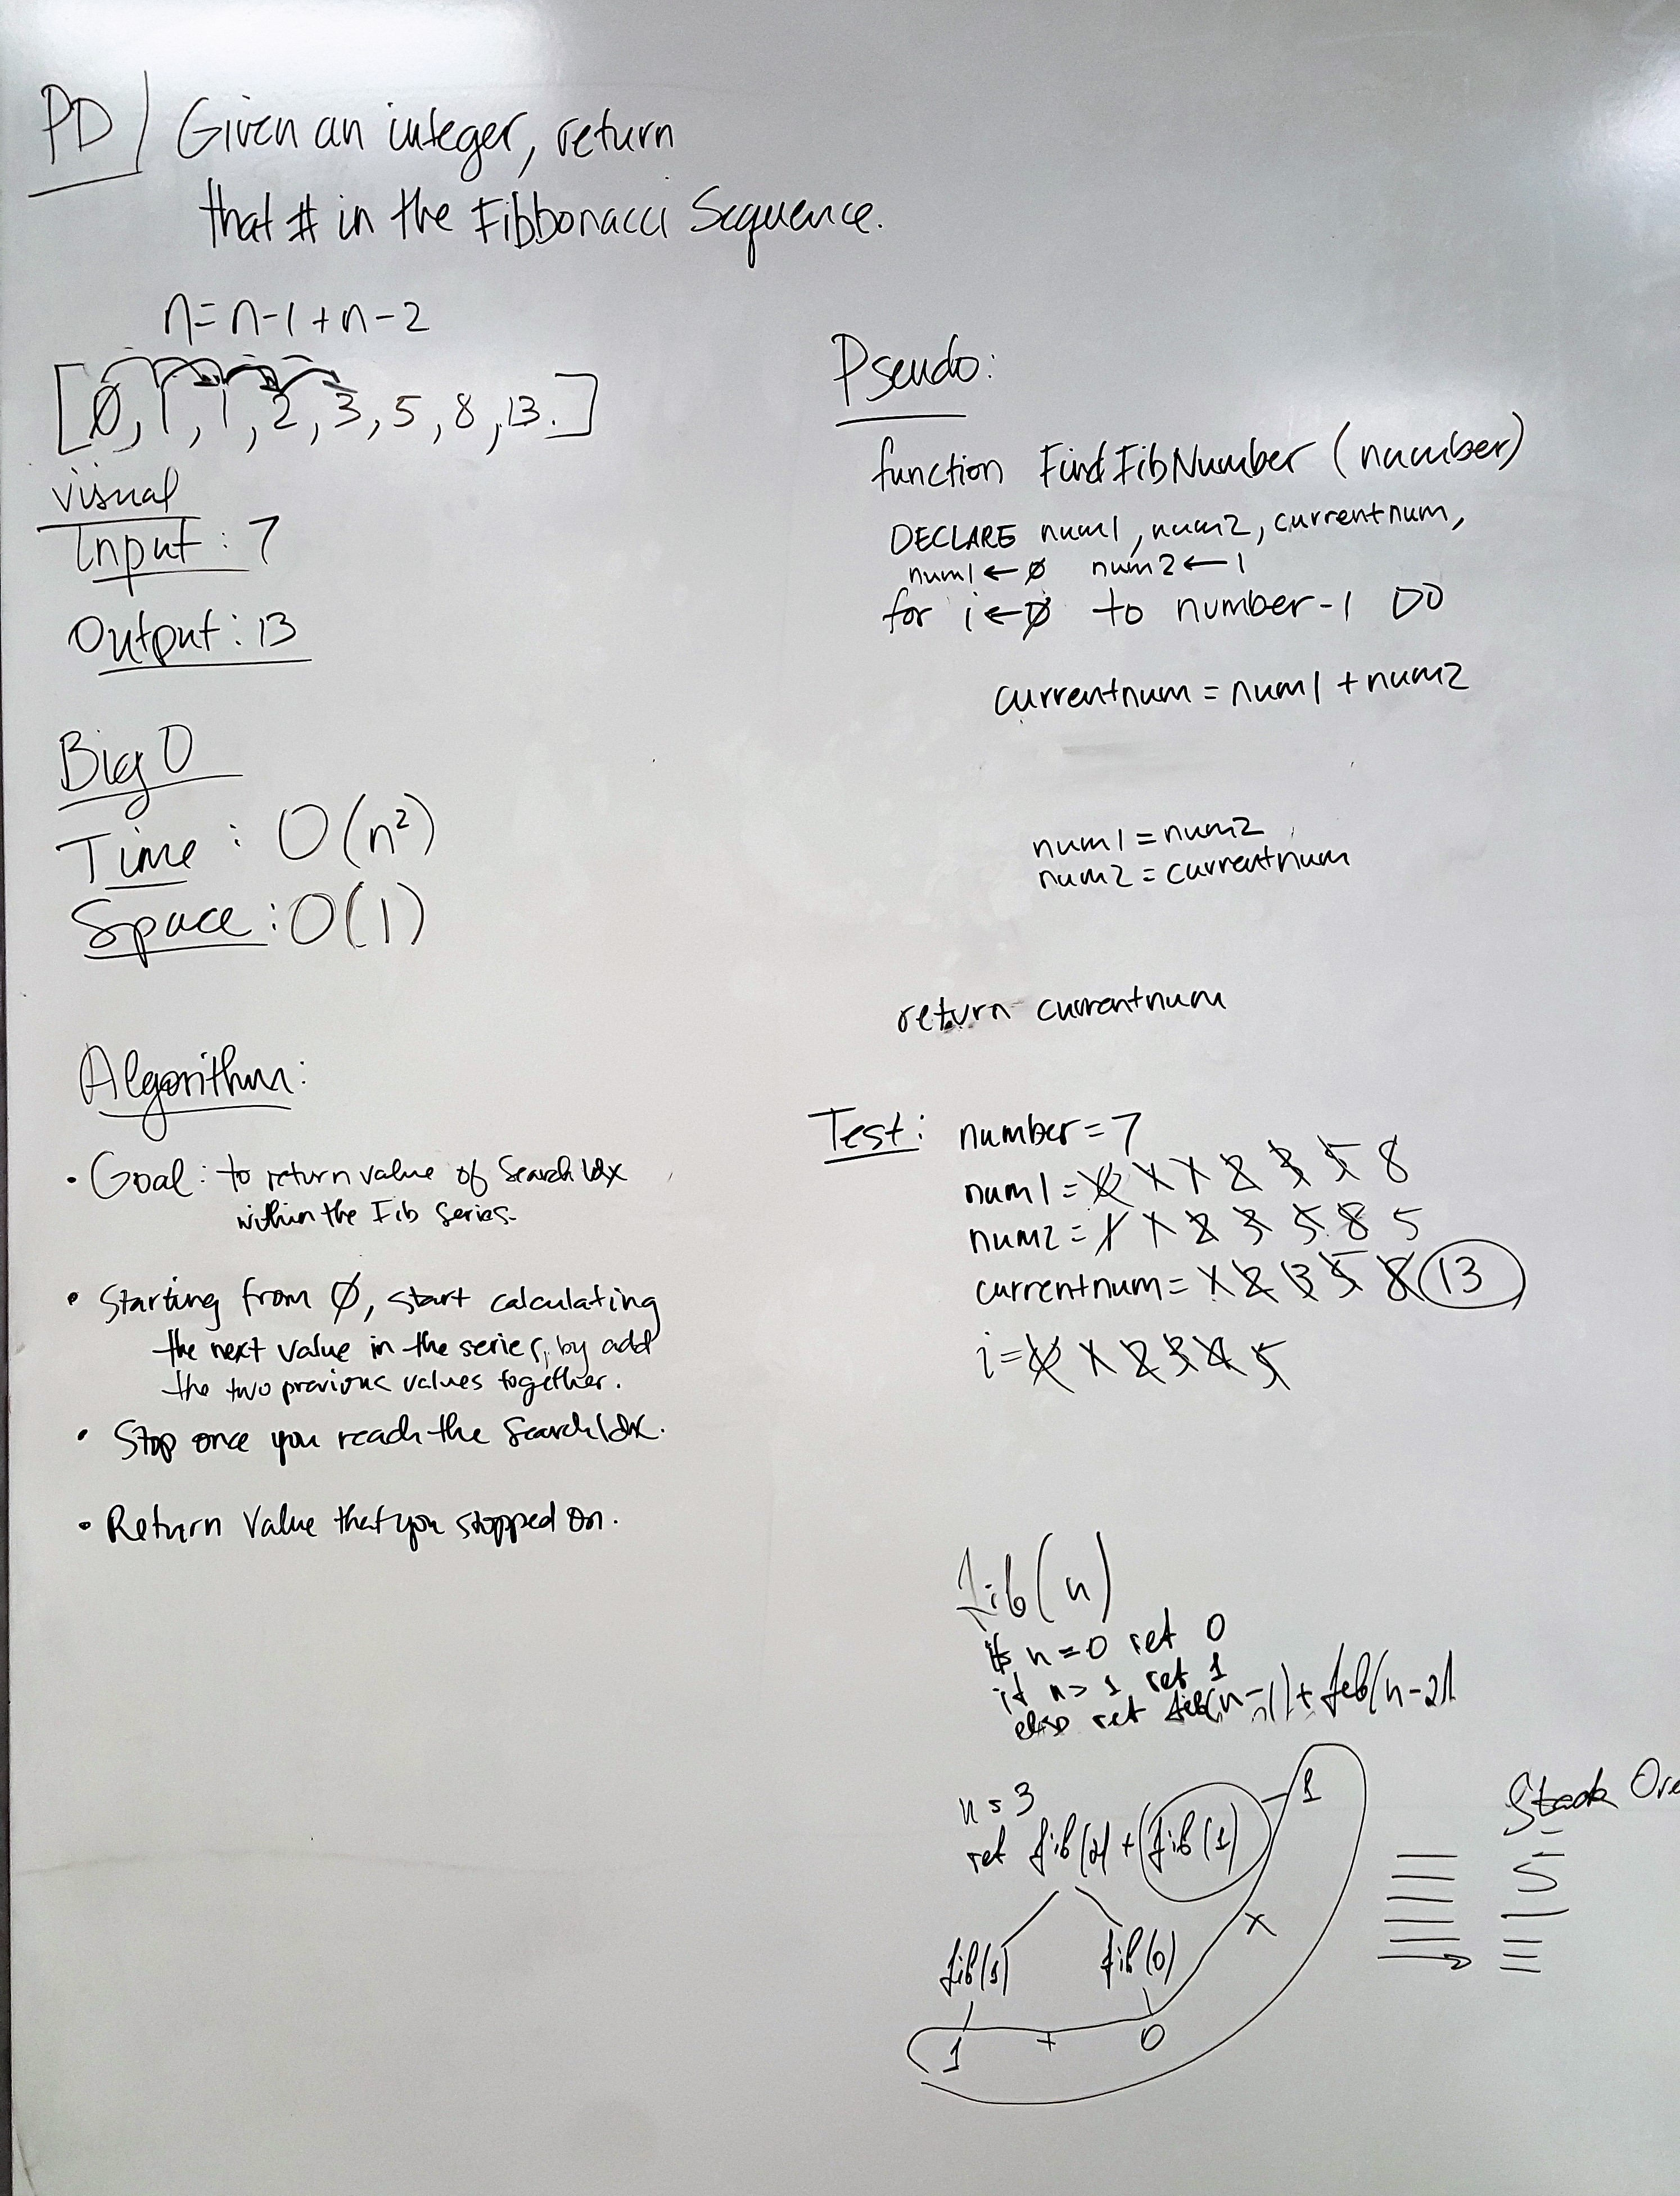 PD
Given an integer, return
that # in the Fibbonacci Sequence.
n=n-1+n-2
[0,1,1,2,3,5,8,13.]
visual
Input: 7
Output: 13
Big O
Time: O(n²)
Space: O(1)
Algorithm:
• Goal: to return value of SearchIdx
within the Fib Series.
• Starting from 0, start calculating
the next value in the series, by add
the two previous values together.
• Stop once you reach the SearchIdx.
• Return Value that you stopped on.
Pseudo:
function FindFibNumber (number)
DECLARE num1, num2, currentnum,
num1 ← 0 num2 ← 1
for i ← 0 to number-1 DO
currentnum = num1 + num2
num1 = num2
num2 = currentnum
return currentnum
Test: number = 7
num1 = 0 1 1 2 3 5 8
num2 = 1 1 2 3 5 8 5
currentnum = 1 2 3 5 8 13
i = 0 1 2 3 4 5
fib(n)
if n = 0 ret 0
if n > 1 ret 1
else ret feb(n-1) + feb(n-2)
n = 3
ret fib(2) + fib(1) 1
fib(1) fib(0)
1 + 0
Stack